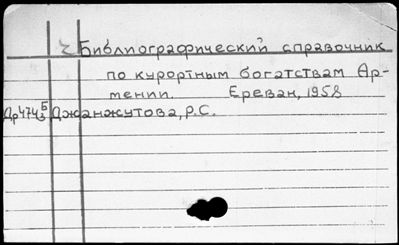 Библиографический справочник
по курортным богатствам Ар-
мении. Ереван, 1958
Джанжутова, Р.С.